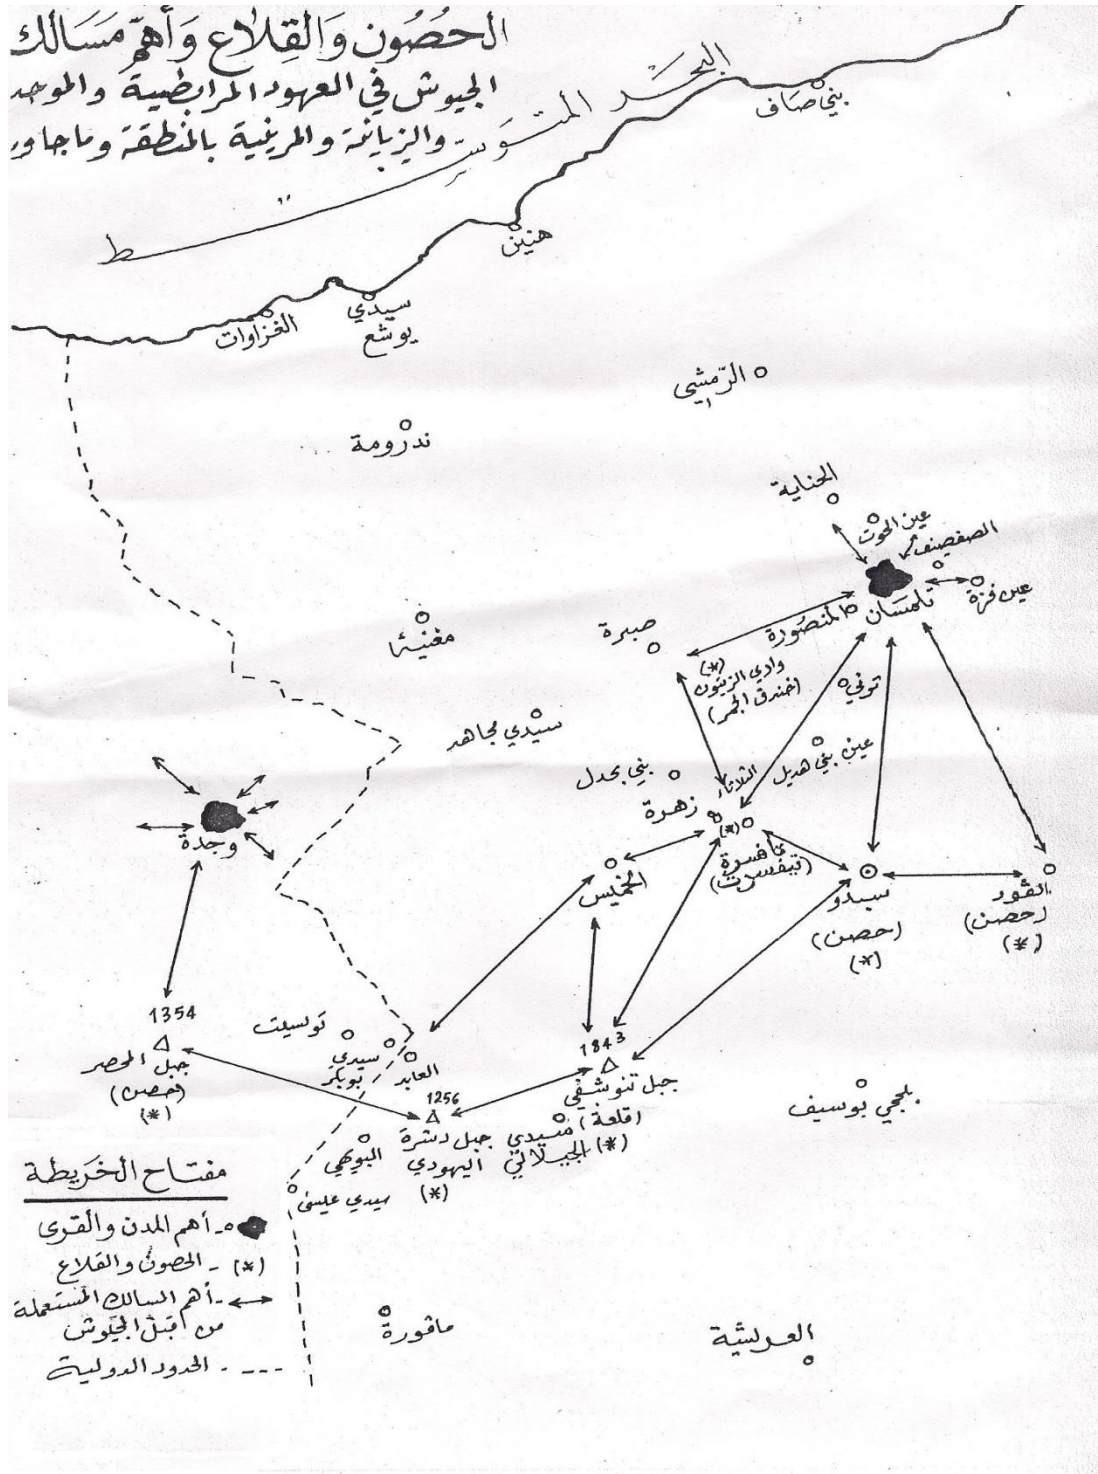 الحصُون وَالقِلاع وَأهمّ مَسَالك
الجيوش في العهود المرابطية والموحد
والزيانية والمرينية بالمنطقة وماجاور
البحر المتوسط
بني صاف
هنين
سيدي
يوشع
الغزاوات
الرّمشي
ندرومة
الحناية
عين الحوت
الصفصيف
عين فزة
تلمسَان
المنصُورة
صبرة
مغنية
(*)
وادي الزيتون
(خندق الجمر)
توني
سيدي مجاهد
عين بني هديل
الثلاثاء
بني بحدل
زهرة
(*)
(تيفسرت)
وجدة
الخميس
سبدو
(حصن)
(*)
القور
(حصن)
(*)
1354
جبل المحصر
(حصن)
(*)
توسيت
سيدي
بوبكر
العابد
1843
جبل تنوشفي
(قلعة)
(*)
1256
جبل دشرة
اليهودي
(*)
سيدي
الجيلالي
البويهي
سيدي عيسى
بلحجي بوسيف
ماقورة
العريشة
مفتاح الخَريطة
- أهم المدن والقرى
(*) - الحصون والقلاع
- أهم المسالك المستعملة
من قبل الجيوش
- الحدود الدولية